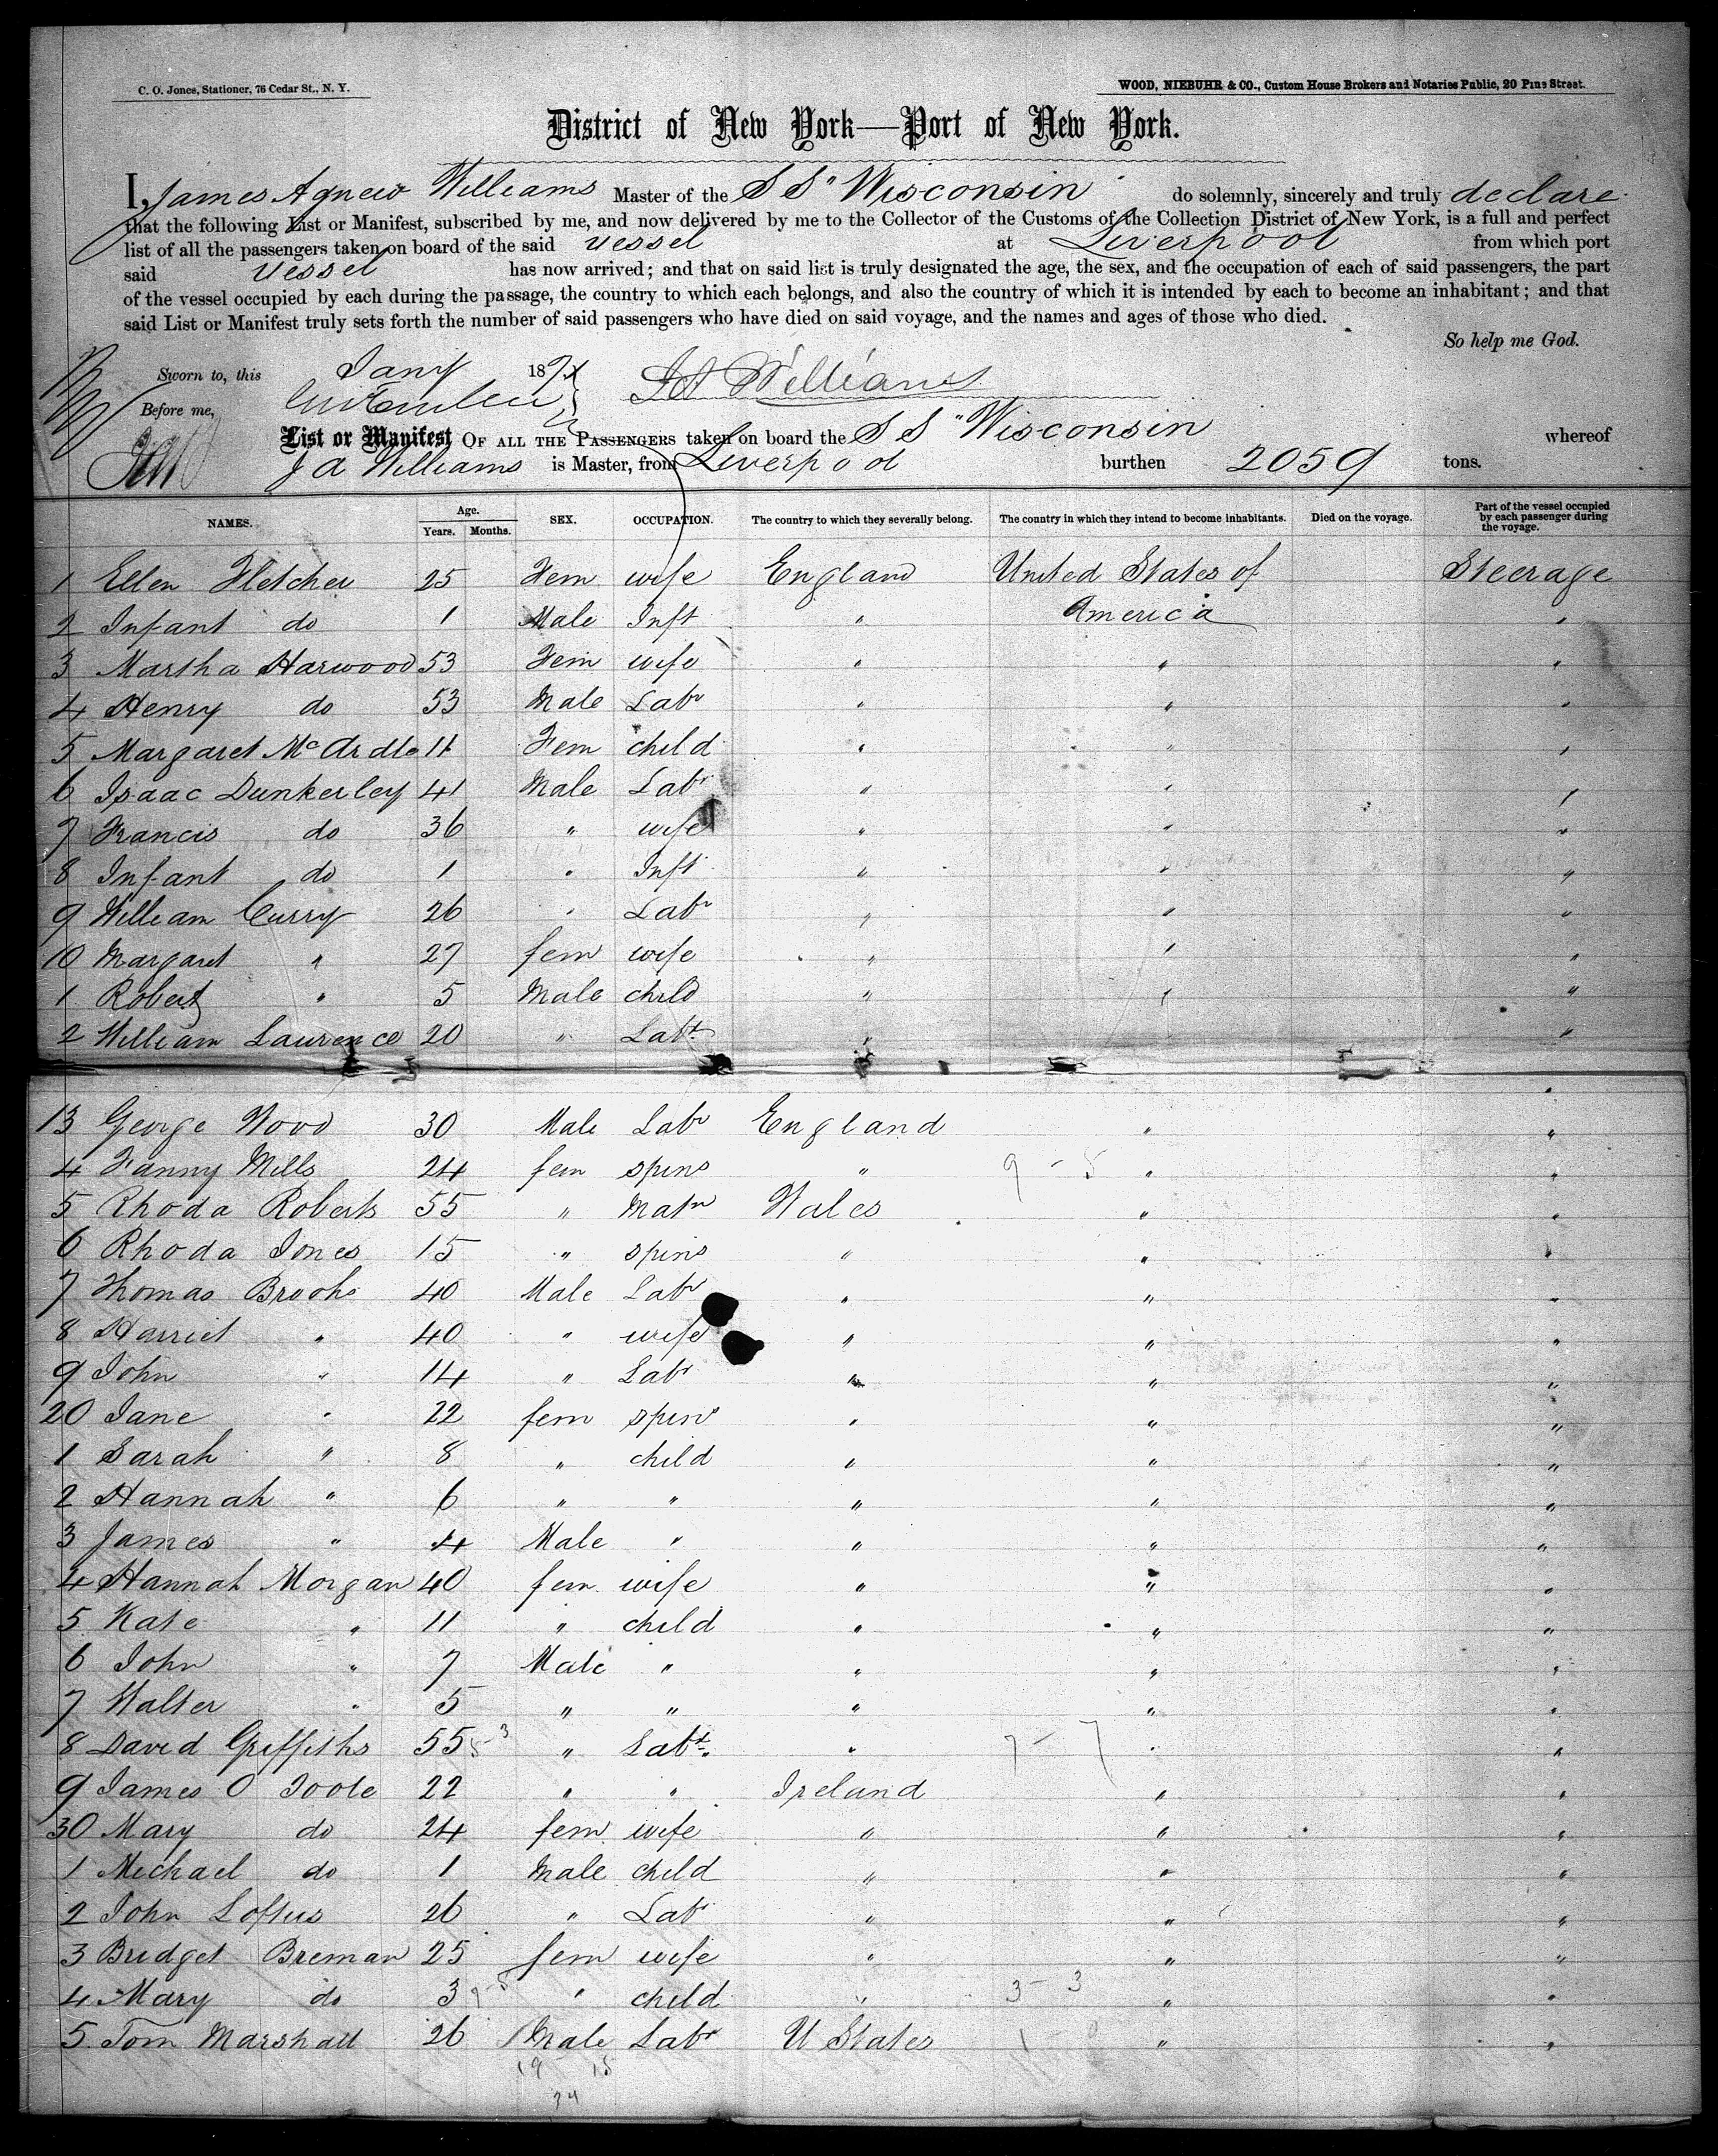 C. O. Jones, Stationer, 76 Cedar St., N. Y.
WOOD, NIEBUHR & CO., Custom House Brokers and Notaries Public, 20 Pine Street.
District of New York—Port of New York.
I, James Agnew Williams Master of the S S "Wisconsin" do solemnly, sincerely and truly declare
that the following List or Manifest, subscribed by me, and now delivered by me to the Collector of the Customs of the Collection District of New York, is a full and perfect
list of all the passengers taken on board of the said vessel at Liverpool from which port
said vessel has now arrived; and that on said list is truly designated the age, the sex, and the occupation of each of said passengers, the part
of the vessel occupied by each during the passage, the country to which each belongs, and also the country of which it is intended by each to become an inhabitant; and that
said List or Manifest truly sets forth the number of said passengers who have died on said voyage, and the names and ages of those who died.
So help me God.
Sworn to, this Jany 187 J A Williams
Before me,
List or Manifest OF ALL THE PASSENGERS taken on board the S S "Wisconsin whereof
J A Williams is Master, from Liverpool burthen 2059 tons.
NAMES. Age. Years. Months. SEX. OCCUPATION. The country to which they severally belong. The country in which they intend to become inhabitants. Died on the voyage. Part of the vessel occupied by each passenger during the voyage.
1 Ellen Fletcher 25 Fem wife England United States of Steerage
2 Infant do 1 Male Inft " America "
3 Martha Harwood 53 Fem wife " " "
4 Henry do 53 Male Labr " " "
5 Margaret McArdle 11 Fem child " " "
6 Isaac Dunkerley 41 Male Labr " " "
7 Francis do 36 " wife " " "
8 Infant do 1 " Inft " " "
9 William Curry 26 " Labr " " "
10 Margaret " 27 fem wife " " "
1 Robert " 5 Male child " " "
2 William Laurence 20 " Labr " "
13 George Wood 30 Male Labr England " "
4 Fanny Mills 24 fem spins " 9 - 5 " "
5 Rhoda Roberts 55 " Matn Wales " "
6 Rhoda Jones 15 " spins " " "
7 Thomas Brooks 40 Male Labr " " "
8 Harriet " 40 " wife " " "
9 John " 14 " Labr " " "
20 Jane " 22 fem spins " " "
1 Sarah " 8 " child " " "
2 Hannah " 6 " " " " "
3 James " 4 Male " " " "
4 Hannah Morgan 40 fem wife " " "
5 Kate " 11 " child " " "
6 John " 7 Male " " " "
7 Walter " 5 " " " " "
8 David Griffiths 55 " Labr. " 7 - 7 " "
9 James O Toole 22 " " Ireland " "
30 Mary do 24 fem wife " " "
1 Michael do 1 Male child " " "
2 John Loftus 26 " Labr " " "
3 Bridget Brennan 25 fem wife " " "
4 Mary do 3 " child " 3 - 3 " "
5 Tom Marshall 26 Male Labr U States " "
19 15
34